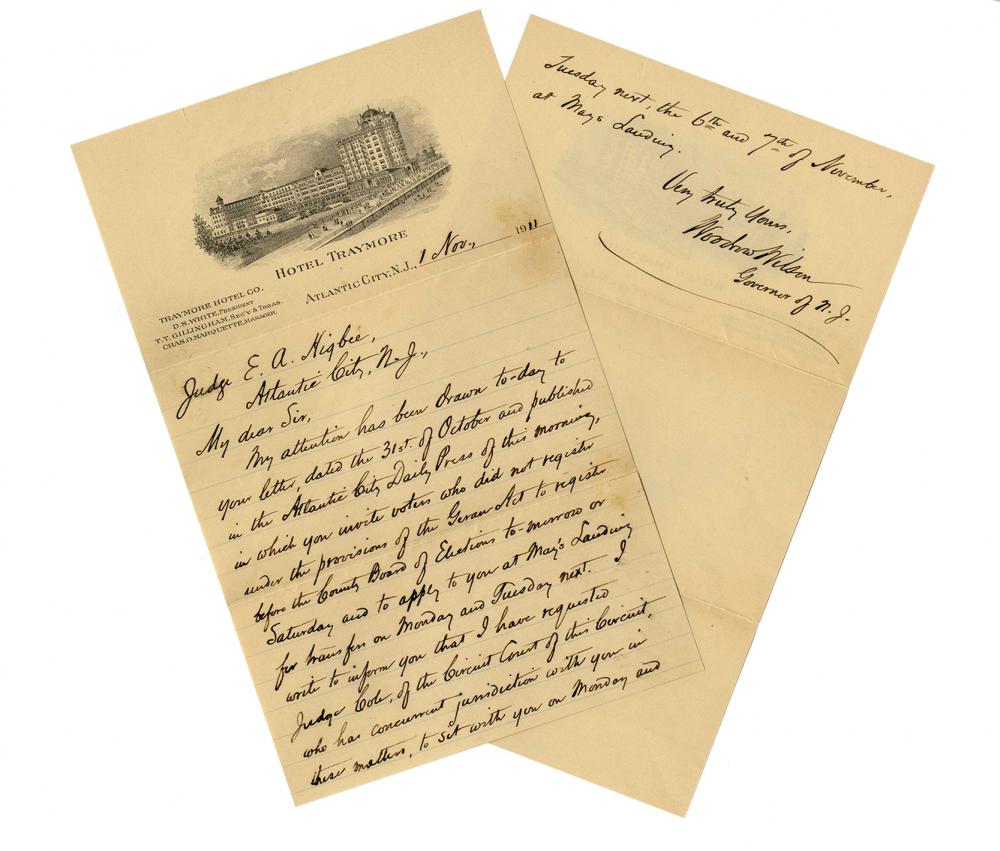 HOTEL TRAYMORE
ATLANTIC CITY, N.J., 1 Nov., 1911
TRAYMORE HOTEL CO.
D.S. WHITE, PRESIDENT
T.T. GILLINGHAM, SEC'Y & TREAS.
CHAS. O. MARQUETTE, MANAGER.
Judge E. A. Higbee,
Atlantic City, N. J.,
My dear Sir,
My attention has been drawn to-day to
your letter, dated the 31st. of October and published
in the Atlantic City Daily Press of this morning,
in which you invite voters who did not register
under the provisions of the Geran Act to register
before the County Board of Elections to-morrow or
Saturday and to apply to you at May's Landing
for transfers on Monday and Tuesday next. I
write to inform you that I have requested
Judge Cole, of the Circuit Court of this Circuit,
who has concurrent jurisdiction with you in
these matters, to sit with you on Monday and
Tuesday next, the 6th and 7th of November,
at Mays Landing.
Very truly Yours,
Woodrow Wilson
Governor of N. J.